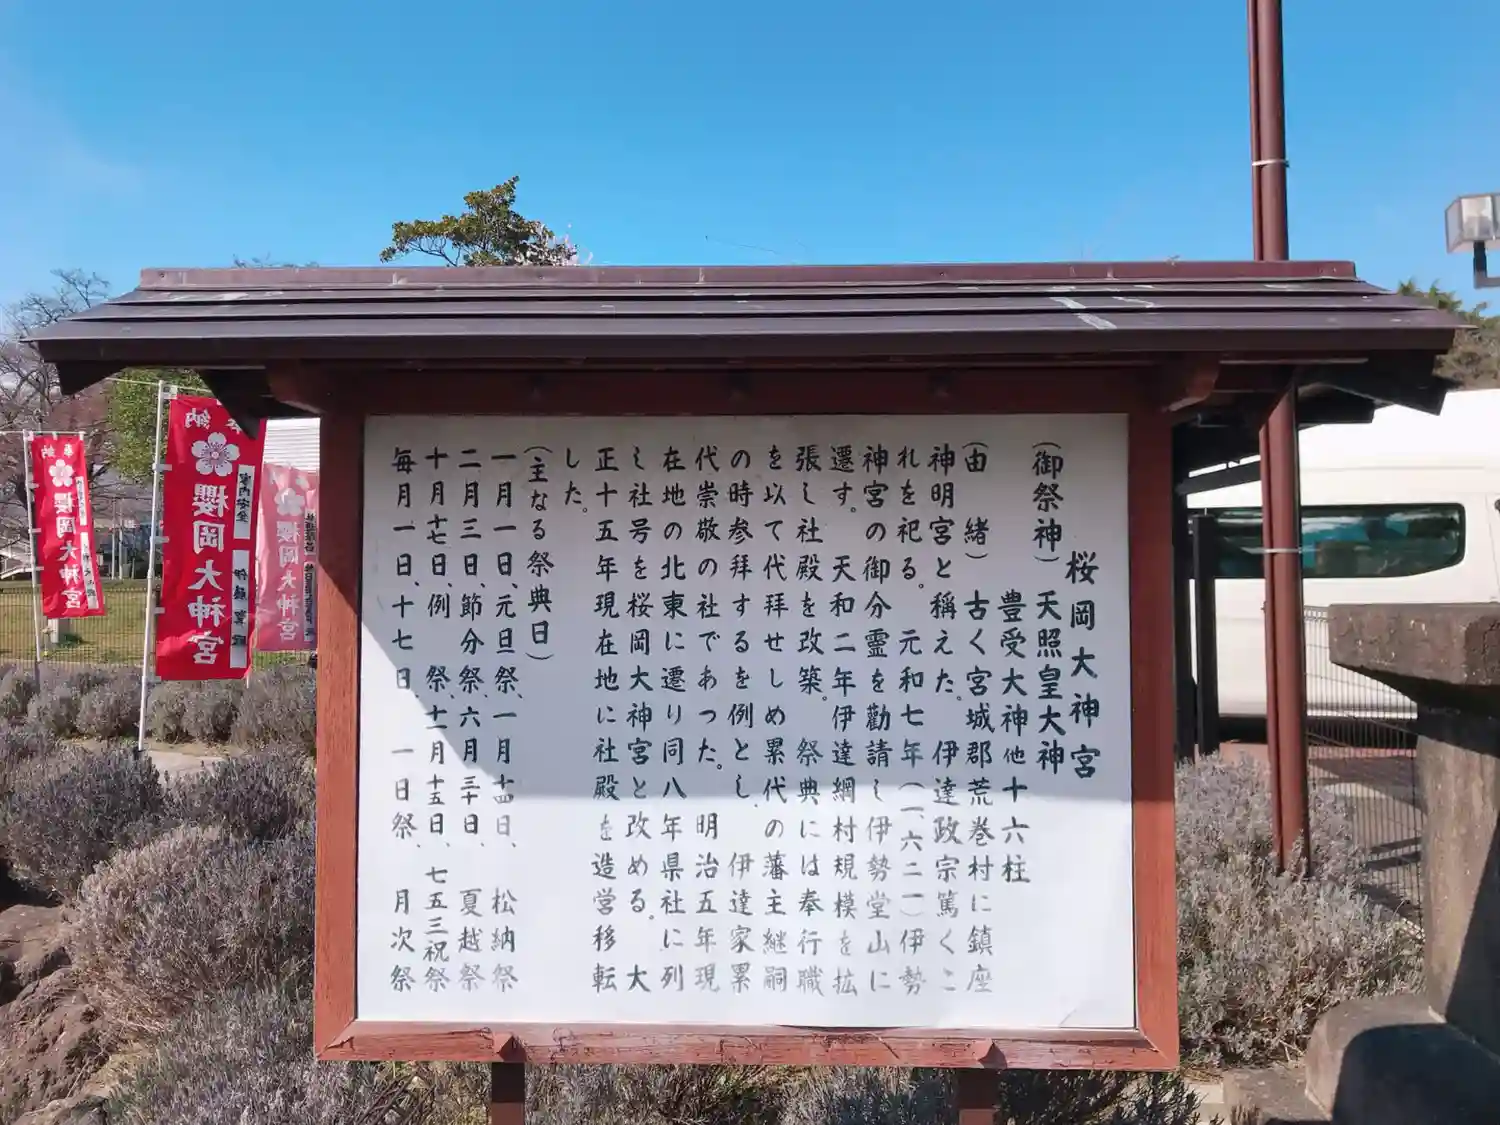 桜岡大神宮
(御祭神) 天照皇大神
豊受大神他十六柱
(由　緒) 古く宮城郡荒巻村に鎮座
神明宮と稱えた。伊達政宗篤くこ
れを祀る。元和七年(一、六二一)伊勢
神宮の御分霊を勸請し伊勢堂山に
遷す。天和二年伊達綱村規模を拡
張し社殿を改築。祭典には奉行職
を以て代拝せしめ累代の藩主継嗣
の時参拝するを例とし、伊達家累
代崇敬の社であった。明治五年現
在地の北東に遷り同八年県社に列
し社号を桜岡大神宮と改める。大
正十五年現在地に社殿を造営移転
した。
(主なる祭典日)
一月一日、元旦祭、一月十四日、松納祭
二月三日、節分祭、六月三十日、夏越祭
十月十七日、例　祭、十一月十五日、七五三祝祭
毎月一日、十七日、一日祭、月次祭
奉納
櫻岡大神宮
家内安全
奉納
櫻岡大神宮
櫻岡大神宮